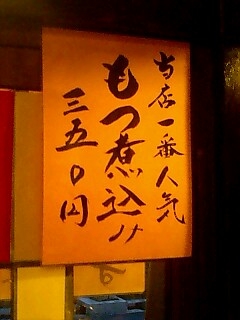 当店一番人気
もつ煮込み
三五〇円